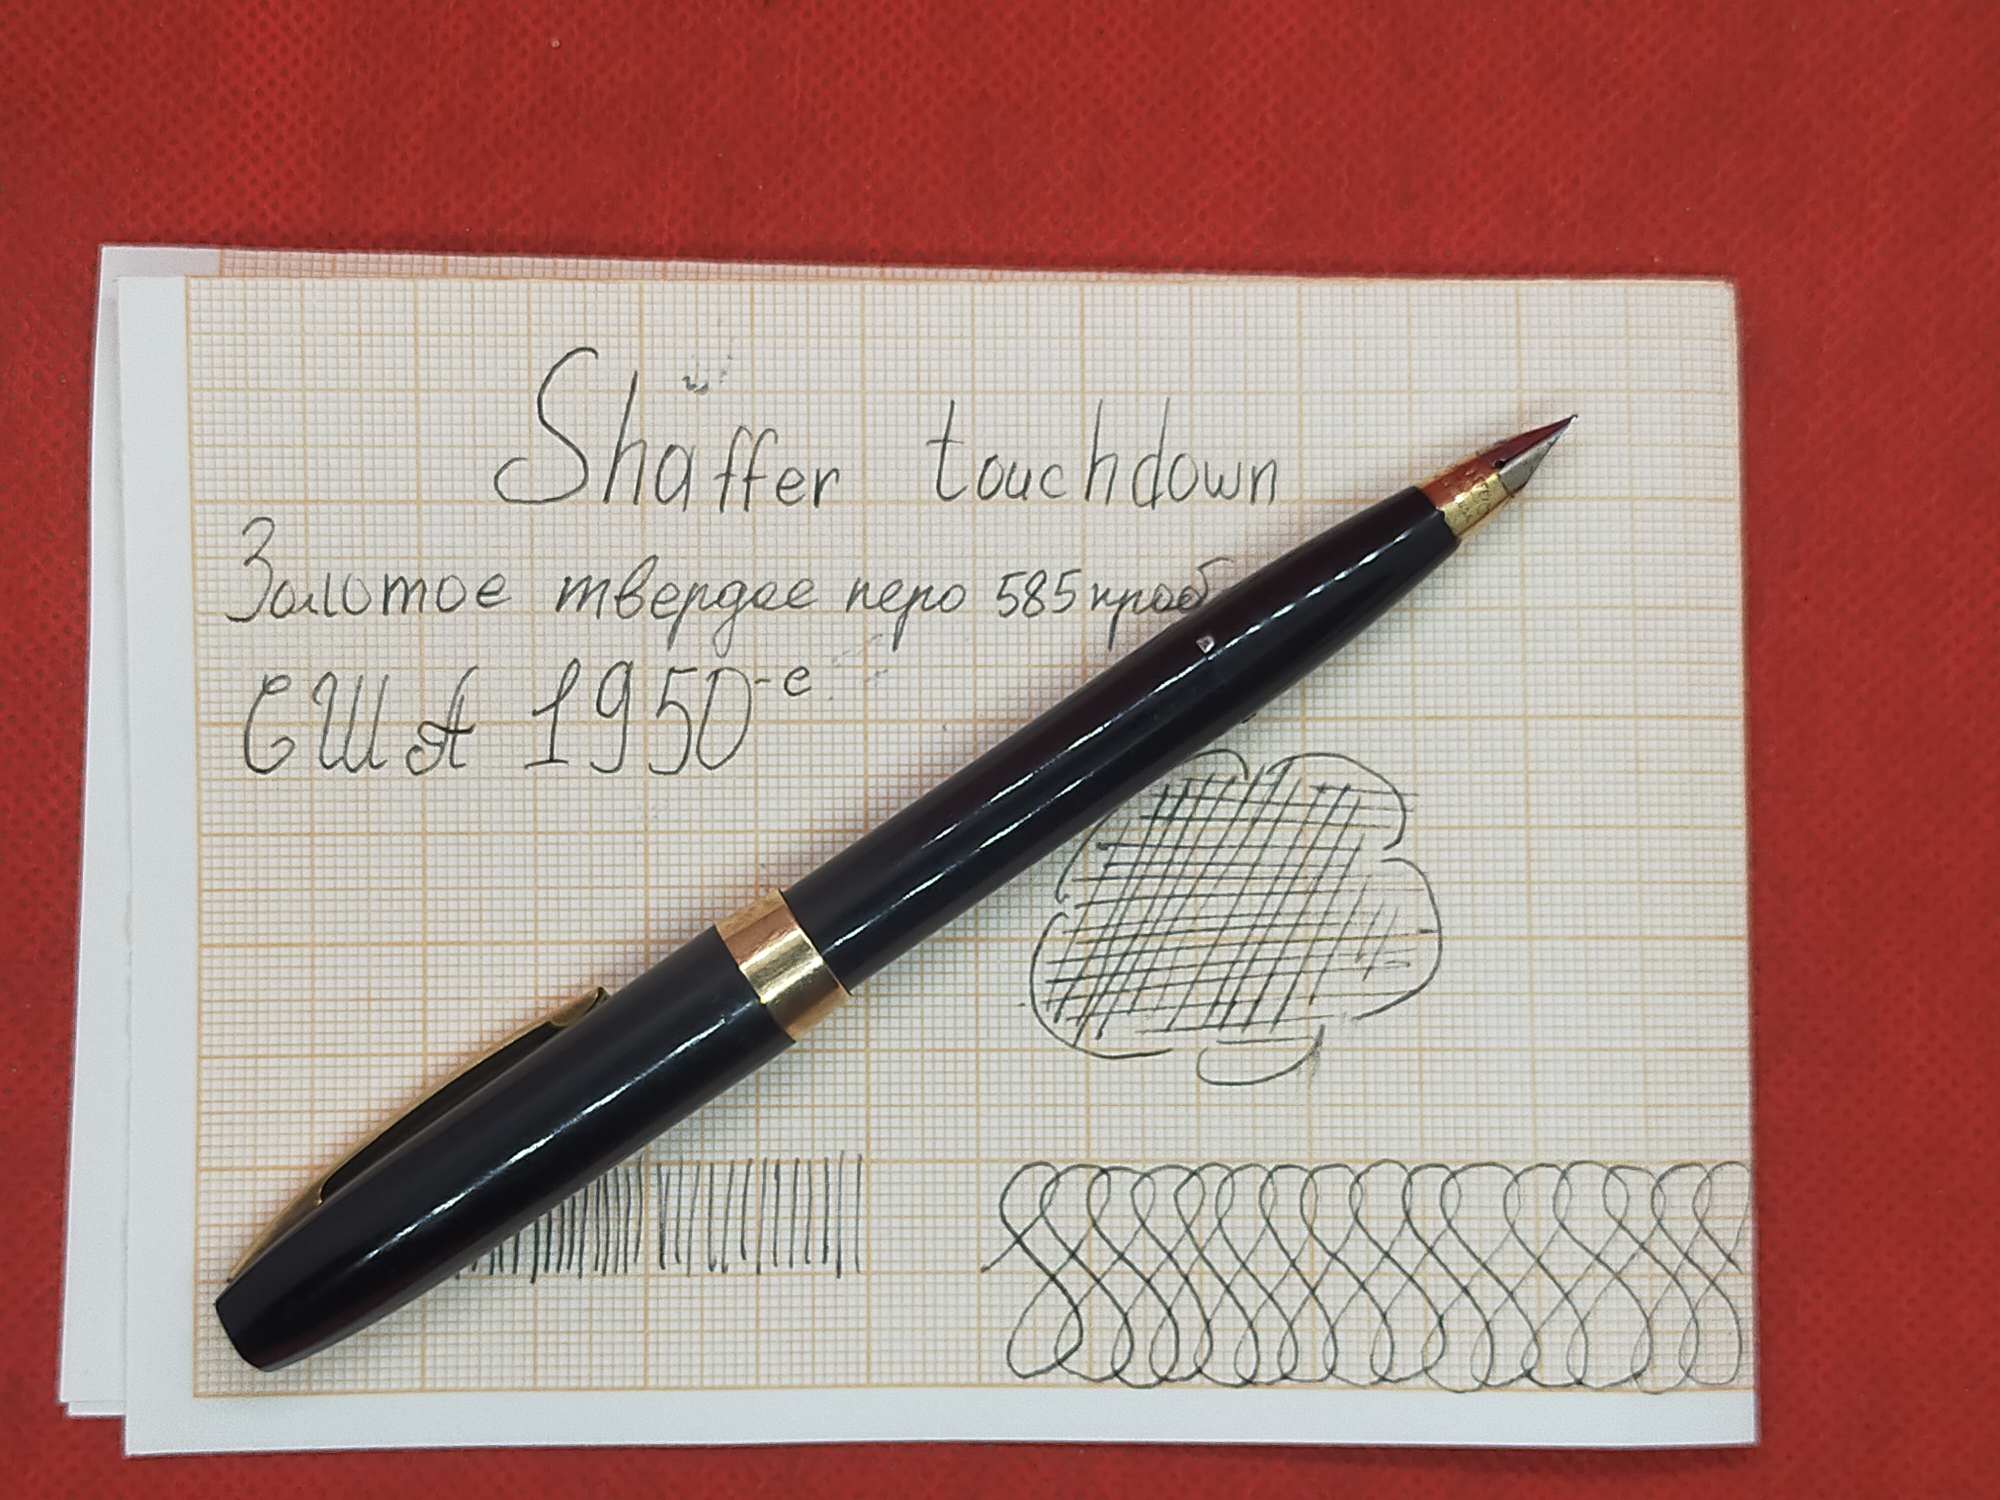 Shäffer touchdown
Золотое твердое перо 585 проб
США 1950-е